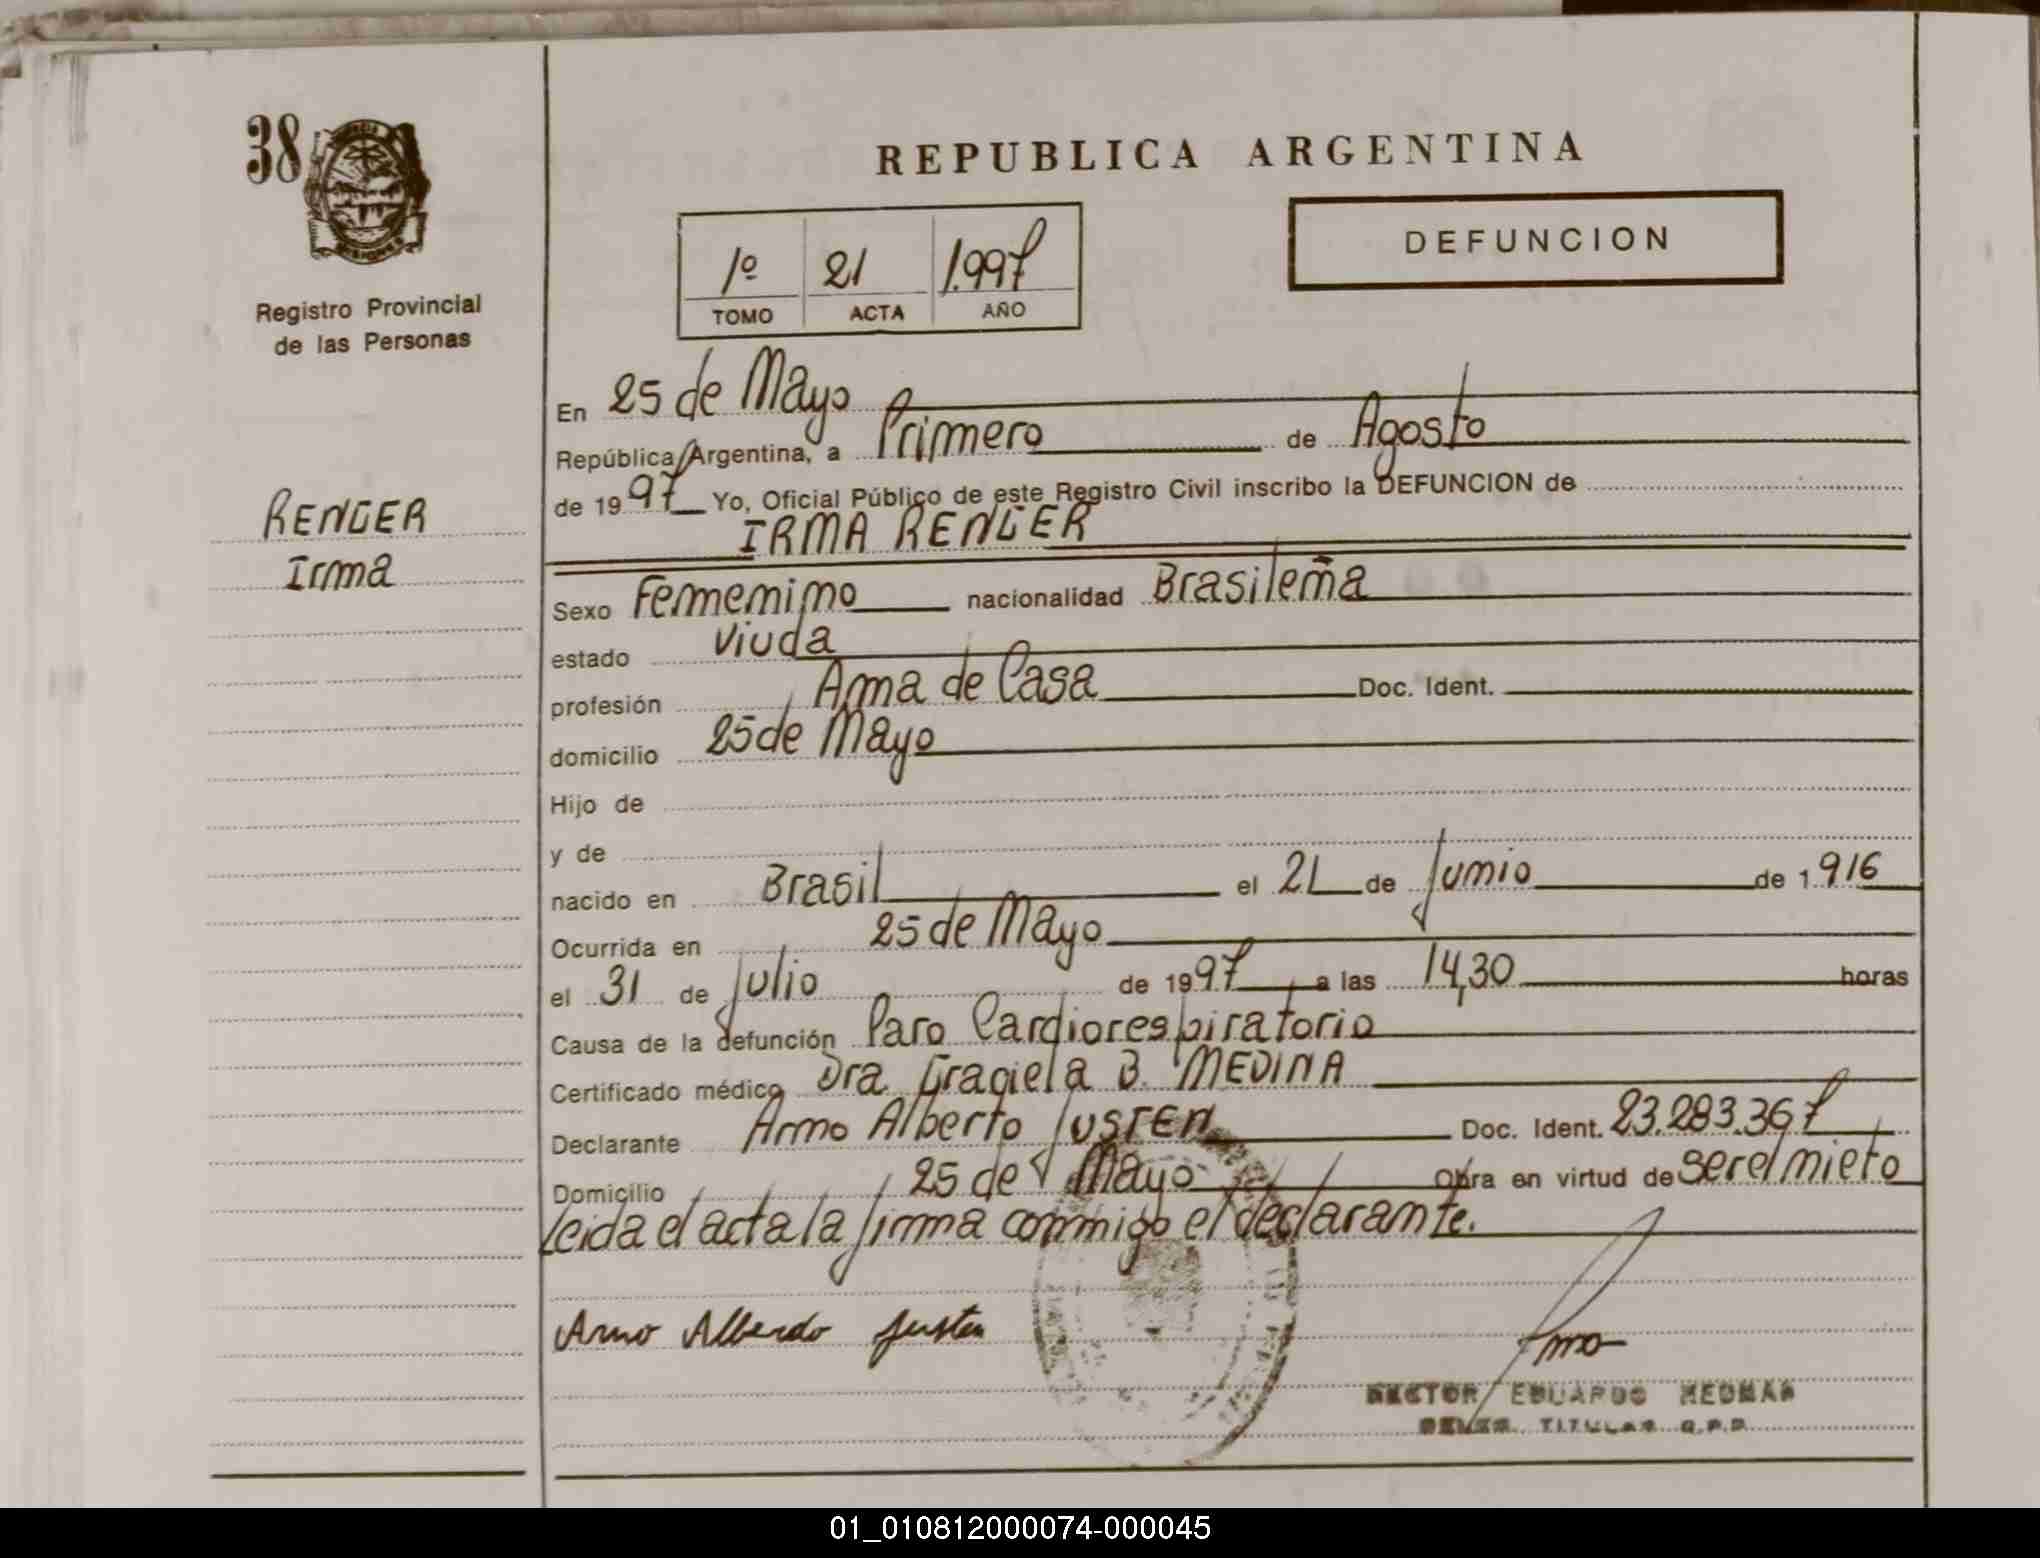 38
MISIONES
Registro Provincial
de las Personas
RENGER
Irma
REPUBLICA ARGENTINA
DEFUNCION
1º 21 1.997
TOMO ACTA AÑO
En 25 de Mayo
República Argentina, a Primero de Agosto
de 1997 Yo, Oficial Público de este Registro Civil inscribo la DEFUNCION de
IRMA RENGER
Sexo Femenino nacionalidad Brasileña
estado viuda
profesión Ama de Casa Doc. Ident.
domicilio 25 de Mayo
Hijo de
y de
nacido en Brasil el 21 de Junio de 1916
Ocurrida en 25 de Mayo
el 31 de Julio de 1997 a las 14,30 horas
Causa de la defunción Paro Cardiorespiratorio
Certificado médico Dra. Graciela B. MEDINA
Declarante Arno Alberto JUSTEN Doc. Ident. 23.283.367
Domicilio 25 de Mayo Obra en virtud de ser el nieto
Leida el acta la firma conmigo el declarante.
Arno Alberdo Justen
HECTOR EDUARDO
TITULAR
01_010812000074-000045